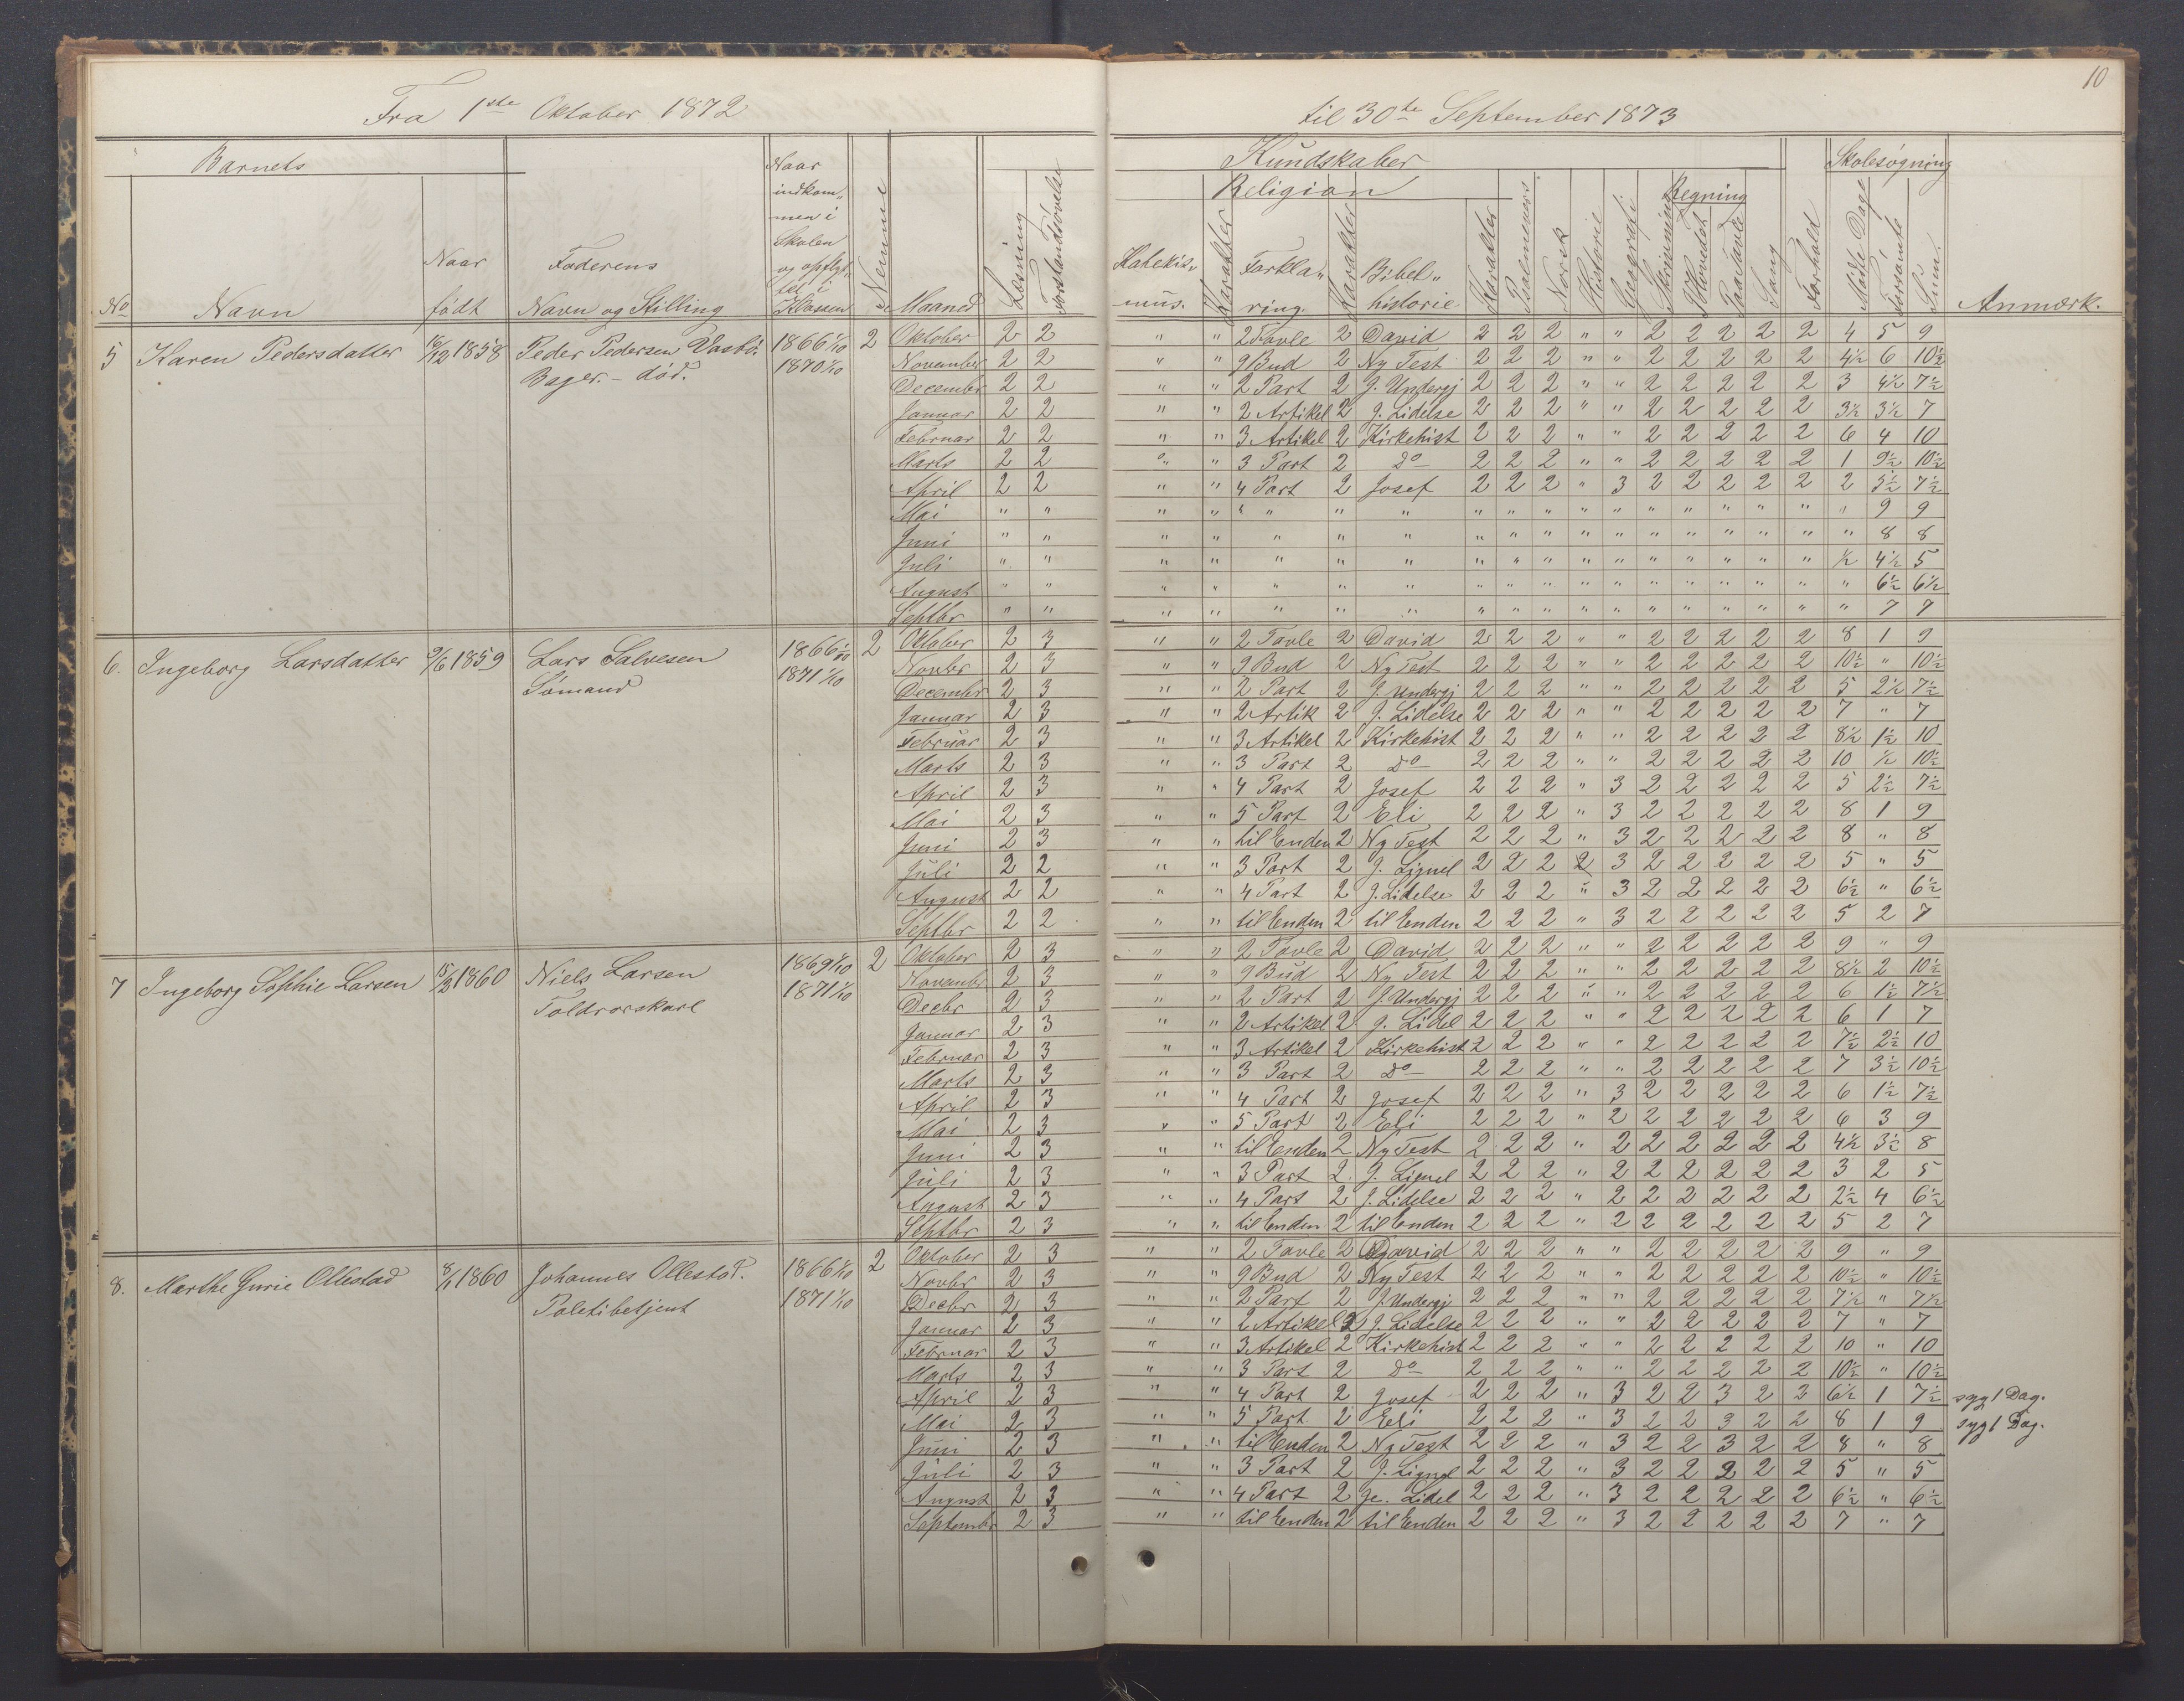 10
Fra 1ste Oktober 1872 til 30te September 1873
Barnets
Kundskaber Skolesøgning
Religion Regning
No Navn Naar født Foderens Navn og Stilling Naar indkom„ men i Skolen og opflyt„ tet i Klassen Nemme Maaned Læsning Forstandsøvelse Katekis„ mus. Karakter Forkla„ ring. Karakter Bibel„ historie Karakter Psalmevers Norsk Historie Geografi Skrivning I Hovedet Paa Tavle Sang Forhold Møde Dage Forsømte Sum. Anmærk.
5 Karen Pedersdatter 16/12 1858 Peder Pedersen Vasbø. 1866 1/10 2 Oktober 2 2 " " 2 Tavle 2 David 2 2 2 " " 2 2 2 2 2 4 5 9
Bager. - død. 1870 1/10 November 2 2 " " 9 Bud 2 Ny Test 2 2 2 " " 2 2 2 2 2 4½ 6 10½
December 2 2 " " 2 Part 2 J. Undergj 2 2 2 " " 2 2 2 2 2 3 4½ 7½
Januar 2 2 " " 2 Artikel 2 J. Lidelse 2 2 2 " " 2 2 2 2 2 3½ 3½ 7
Februar 2 2 " " 3 Artikel 2 Kirkehist 2 2 2 " " 2 2 2 2 2 6 4 10
Marts 2 2 " " 3 Part 2 Do 2 2 2 " " 2 2 2 2 2 1 9½ 10½
April 2 2 " " 4 Part 2 Josef 2 2 2 " 3 2 2 2 2 2 2 5½ 7½
Mai " " " " " " " " " " " " " " " " " " 9 9
Juni " " " " " " " " " " " " " " " " " " 8 8
Juli " " " " " " " " " " " " " " " " " ½ 4½ 5
August " " " " " " " " " " " " " " " " " " 6½ 6½
Septbr " " " " " " " " " " " " " " " " " " 7 7
6. Ingeborg Larsdatter 9/6 1859 Lars Salvesen 1866 1/10 2 Oktober 2 3 " " 2 Tavle 2 David 2 2 2 " " 2 2 2 2 2 8 1 9
Sømand 1871 1/10 Novbr 2 3 " " 9 Bud 2 Ny Test 2 2 2 " " 2 2 2 2 2 10½ " 10½
December 2 3 " " 2 Part 2 J. Undergj 2 2 2 " " 2 2 2 2 2 5 2½ 7½
Januar 2 3 " " 2 Artik 2 J. Lidelse 2 2 2 " " 2 2 2 2 2 7 " 7
Februar 2 3 " " 3 Artikel 2 Kirkehist 2 2 2 " " 2 2 2 2 2 8½ 1½ 10
Marts 2 3 " " 3 Part 2 Do 2 2 2 " " 2 2 2 2 2 10 ½ 10½
April 2 3 " " 4 Part 2 Josef 2 2 2 " 3 2 2 2 2 2 5 2½ 7½
Mai 2 3 " " 5 Part 2 Eli 2 2 2 " 3 2 2 2 2 2 8 1 9
Juni 2 3 " " til Enden 2 Ny Test 2 2 2 " 3 2 2 2 2 2 8 " 8
Juli 2 2 " " 3 Part 2 J. Lignel 2 2 2 2 3 2 2 2 2 2 5 " 5
August 2 2 " " 4 Part 2 J. Lidelse 2 2 2 " 3 2 2 2 2 2 6½ " 6½
Septbr 2 2 " " til Enden 2 til Enden 2 2 2 " 3 2 2 2 2 2 5 2 7
7 Ingeborg Sophie Larsen 15/2 1860 Niels Larsen 1869 1/10 2 Oktober 2 3 " " 2 Tavle 2 David 2 2 2 " " 2 2 2 2 2 9 " 9
Toldrorskarl 1871 1/10 November 2 3 " " 9 Bud 2 Ny Test 2 2 2 " " 2 2 2 2 2 8½ 2 10½
Decbr 2 3 " " 2 Part 2 J. Undergj 2 2 2 " " 2 2 2 2 2 6 1½ 7½
Januar 2 3 " " 2 Artikel 2 J. Lidel 2 2 2 " " 2 2 2 2 2 6 1 7
Februar 2 3 " " 3 Artikel 2 Kirkehist 2 2 2 " " 2 2 2 2 2 7½ 2½ 10
Marts 2 3 " " 3 Part 2 Do 2 2 2 " " 2 2 2 2 2 7 3½ 10½
April 2 3 " " 4 Part 2 Josef 2 2 2 " 3 2 2 2 2 2 6 1½ 7½
Mai 2 3 " " 5 Part 2 Eli 2 2 2 " 2 2 2 2 2 2 6 3 9
Juni 2 3 " " til Enden 2 Ny Test 2 2 2 " 2 2 2 2 2 2 4½ 3½ 8
Juli 2 3 " " 3 Part 2 J. Lignel 2 2 2 " 2 2 2 2 2 2 3 2 5
August 2 3 " " 4 Part 2 J. Lidelse 2 2 2 " 2 2 2 2 2 2 2½ 4 6½
Septbr 2 3 " " til Enden 2 til Enden 2 2 2 " 2 2 2 2 2 2 5 2 7
8. Marthe Gurie Ollestad 8/1 1860 Johannes Ollestad. 1866 1/10 2 Oktober 2 3 " " 2 Tavle 2 David 2 2 2 " " 2 2 2 2 2 9 " 9
Politibetjent 1871 1/10 Novbr 2 3 " " 9 Bud 2 Ny Test 2 2 2 " " 2 2 2 2 2 10½ " 10½
Decbr 2 3 " " 2 Part 2 J. Undergj 2 2 2 " " 2 2 2 2 2 7½ " 7½
Januar 2 3 " " 2 Artikel 2 J. Lidelse 2 2 2 " " 2 2 2 2 2 7 " 7
Februar 2 3 " " 3 Artikel 2 Kirkehist 2 2 2 " " 2 2 2 2 2 10 " 10
Marts 2 3 " " 3 Part 2 Do 2 2 2 " " 2 2 2 2 2 10½ " 10½
April 2 3 " " 4 Part 2 Josef 2 2 2 " 3 2 2 3 2 2 6½ 1 7½ syg 1 Dag.
Mai 2 3 " " 5 Part 2 Eli 2 2 2 " 3 2 2 3 2 2 8 1 9 syg 1 Dag.
Juni 2 3 " " til Enden 2 Ny Test 2 2 2 " 3 2 2 3 2 2 8 " 8
Juli 2 3 " " 3 Part 2 J. Lignel 2 2 2 " 3 2 2 2 2 2 5 " 5
August 2 3 " " 4 Part 2 Je. Lidel 2 2 2 " 3 2 2 2 2 2 6½ " 6½
Septembr 2 3 " " til Enden 2 til Enden 2 2 2 " 3 2 2 2 2 2 7 " 7